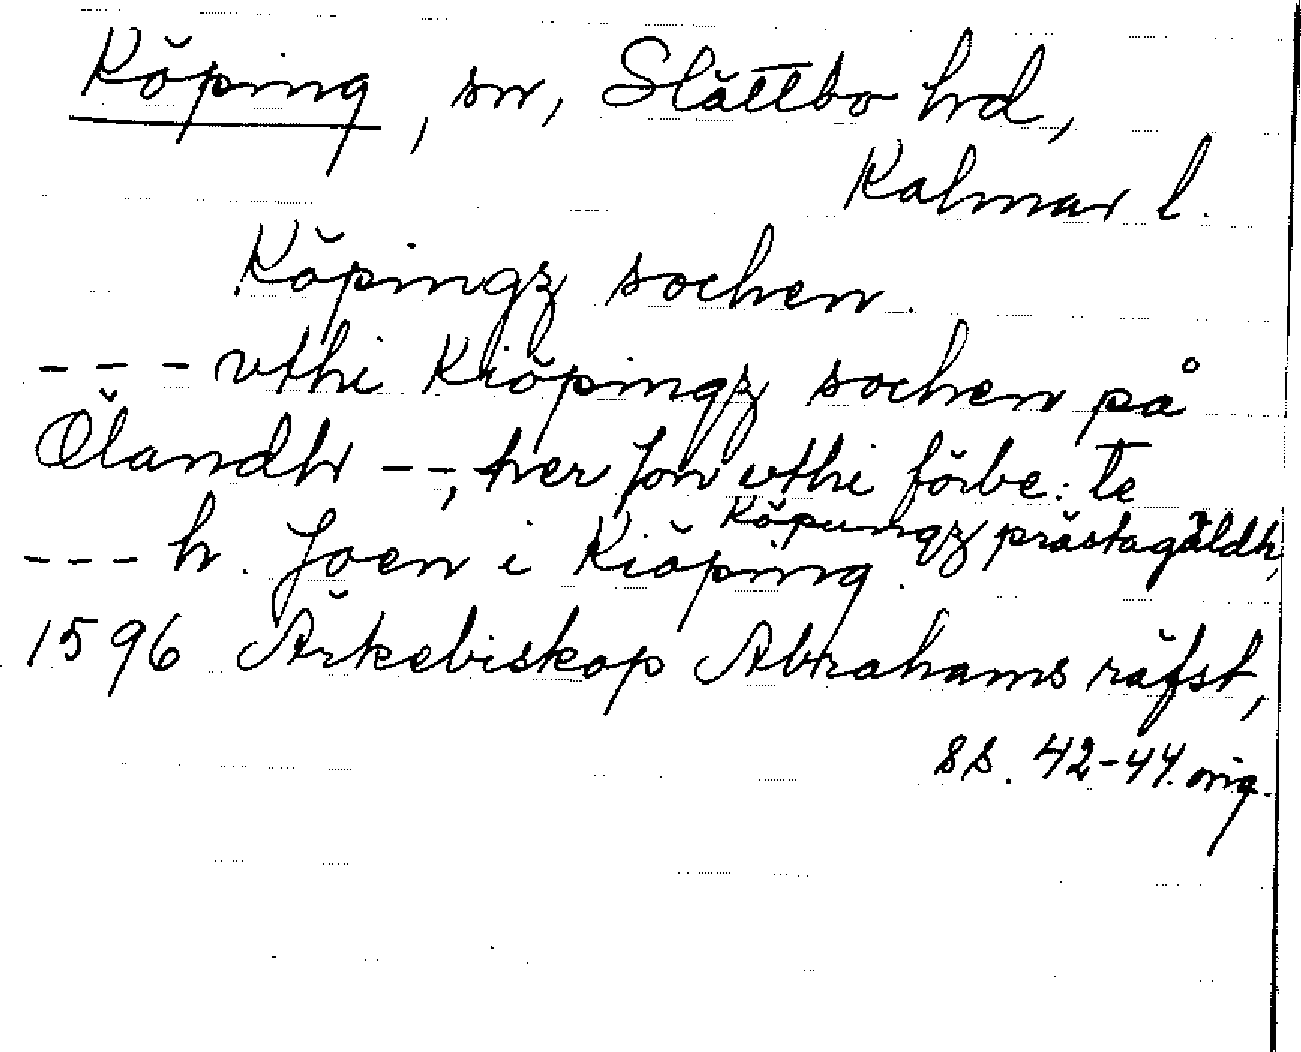 Köping, sn, Slättbo hd,
Kalmar l.
Köpingz sochen.
--- vthi Kiöpingz sochen på
Ölandh --, her Jon vthi förbe: te
Köpungz prästagäldh,
--- h. Joen i Kiöping.
1596 Ärkebiskop Abrahams räfst,
ss. 42-44. orig.